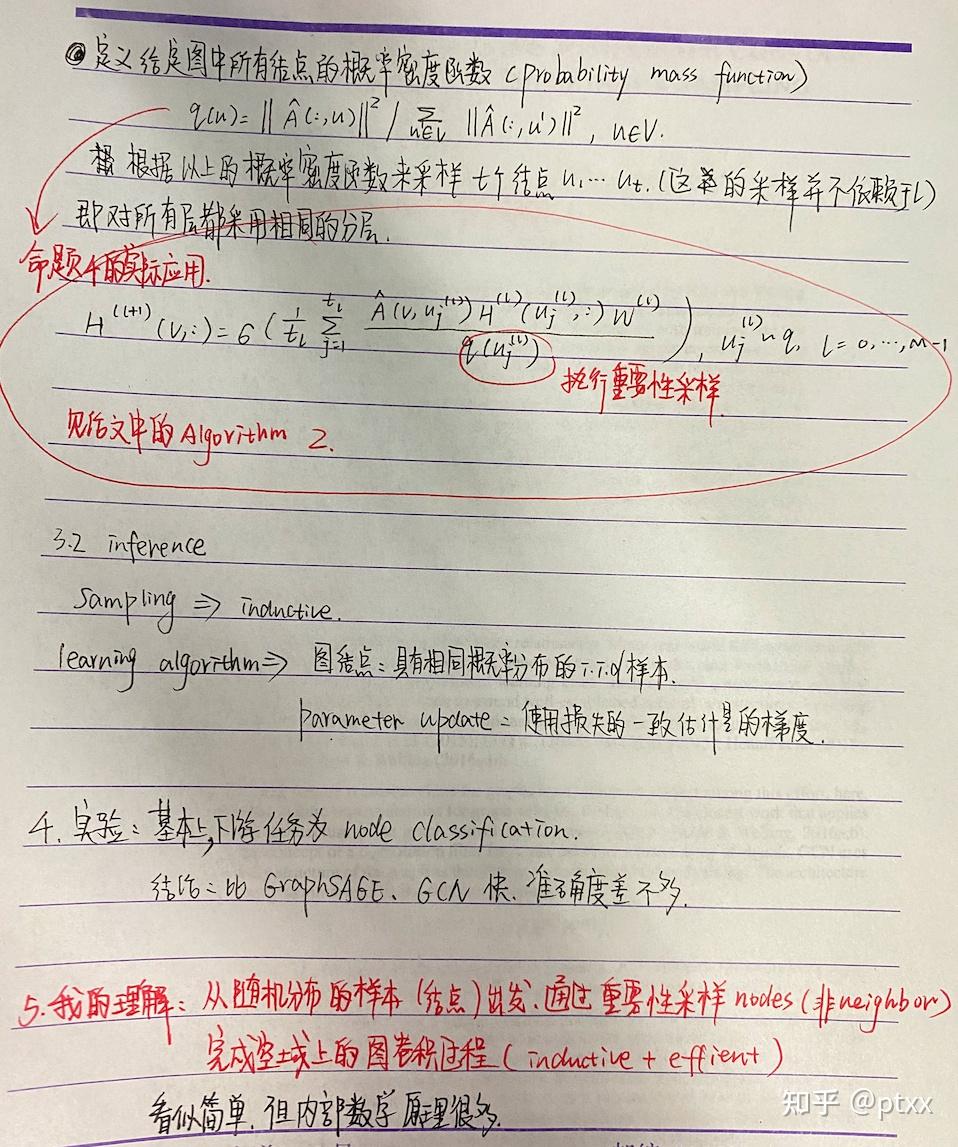 定义给定图中所有结点的概率密度函数 (probability mass function)
q(u) = ||Â(:,u)||² / Σ_{u∈V} ||Â(:,u')||², u∈V.
根据以上的概率密度函数来采样 t个结点 u₁…u_t. (这里的采样并不依赖于l)
即对所有层都采用相同的分层.
命题4的实际应用.
H^{(l+1)}(v,:) = σ( 1/t_l Σ_{j=1}^{t_l} Â(v,u_j^{(l)}) H^{(l)}(u_j^{(l)},:) W^{(l)} / q(u_j^{(l)}) ), u_j^{(l)} ~ q, l=0,…,M-1
执行重要性采样
见论文中的 Algorithm 2.
3.2 inference
Sampling ⇒ inductive.
learning algorithm ⇒ 图结点: 具有相同概率分布的 i.i.d 样本.
parameter update = 使用损失的一致估计量的梯度.
4. 实验: 基本上,下游任务为 node classification.
结论 = 比 GraphSAGE、GCN 快、准确度差不多.
5. 我的理解: 从随机分布的样本 (结点) 出发、通过重要性采样 nodes (非neighbor)
完成空域上的图卷积过程 ( inductive + effient )
看似简单, 但内部数学原理很多.
知乎 @ptxx